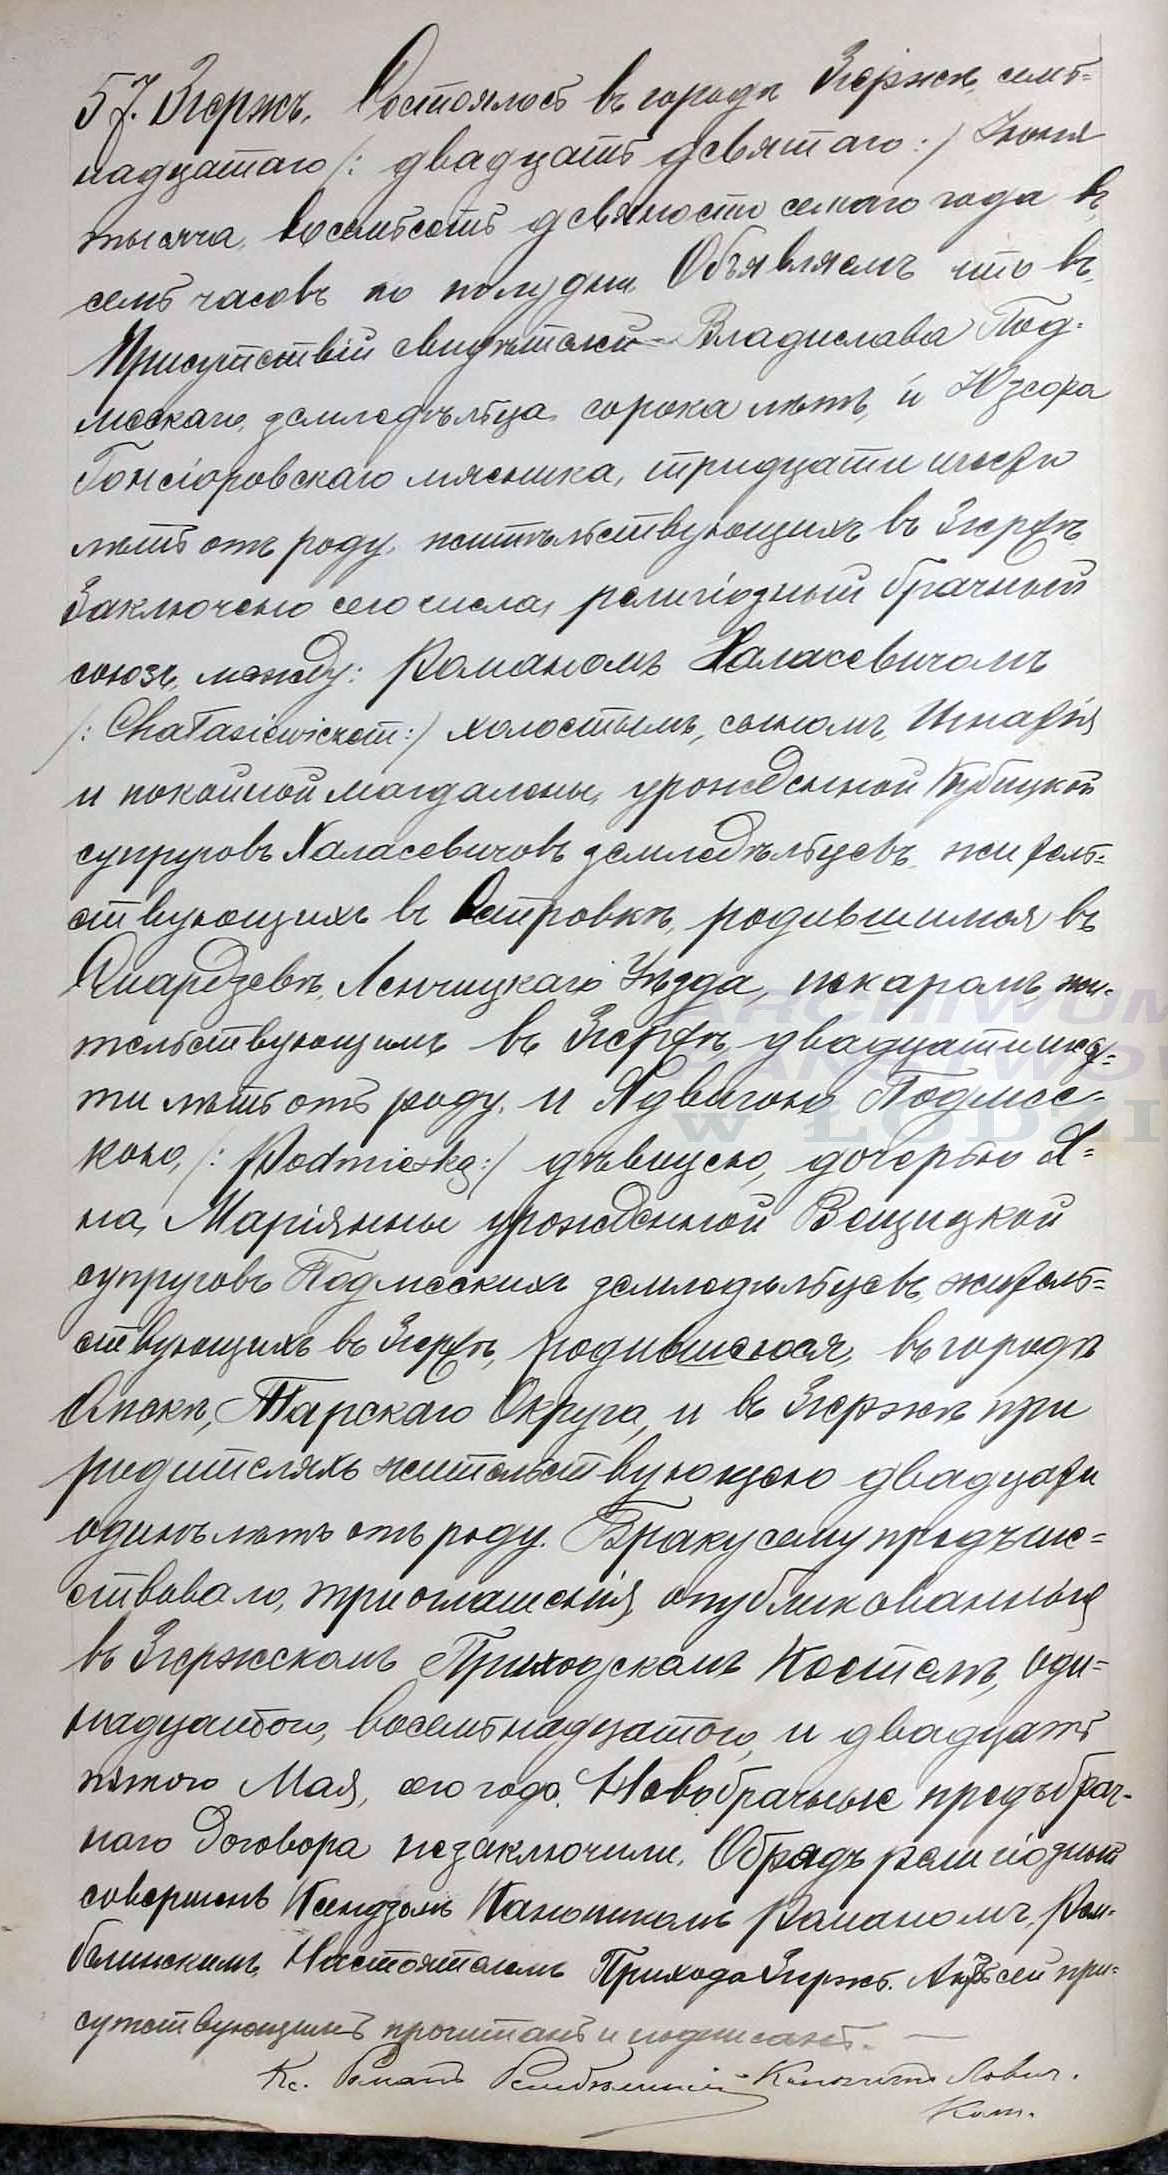 57. Згержъ. Состоялось въ городѣ Згержѣ, семь=
надцатаго /: двадцать девятаго :/ Іюня
тысяча восемьсотъ девяносто седьмаго года въ
семь часовъ по полудни. Объявляемъ что въ
Присутствіи свидѣтелей Владислава Под=
мескаго, земледѣльца, сорока лѣтъ, и Юзефа
Гонсіоровскаго мясника, тридцати шести
лѣтъ отъ роду, жительствующихъ въ Згержѣ,
Заключено сего числа, религіозный брачный
союзъ, между: Романомъ Халасевичомъ
/: Chałasiewiczem :/ холостымъ, сыномъ, Игнатія
и покойной Магдалены, урожденной Кубицкой
супруговъ Халасевичовъ земледѣльцевъ, житель=
ствующихъ въ Островкѣ, родившимся въ
Лѣнчицкаго Уѣзда, пекаромъ, жи=
тельствующимъ въ Згержѣ, двадцати шес=
ти лѣтъ отъ роду, и Ядвигою Подмес=
кою, /: Podmieską :/ дѣвицею, дочерью Я=
на, Маріянны урожденной Вещицкой
супруговъ Подмескихъ земледѣльцевъ, житель=
ствующихъ въ Згержѣ, родившеюся, въ городѣ
Омскѣ, Тарскаго Округа, и въ Згержѣ при
родителяхъ жительствующею двадцати
одинъ лѣтъ отъ роду. Браку сему предъше=
ствовало, три оглашенія, опубликованныя
въ Згержскомъ Приходскомъ Костелѣ, оди=
надцатого, восемьнадцатого, и двадцать
пятого Мая, сего года. Новобрачные предъбрач=
наго Договора незаключили. Обрядъ религіозный
совершенъ Ксендзомъ Каноникомъ Романомъ, Рем=
бѣлинскимъ, Настоятелемъ Прихода Згержъ. Актъ сей при=
сутствующимъ прочитанъ и подписанъ. —
Кс. Романъ Рембѣлинскій Каноникъ Лович.
Кол.
ARCHIWUM
PAŃSTWOWE
W ŁODZI